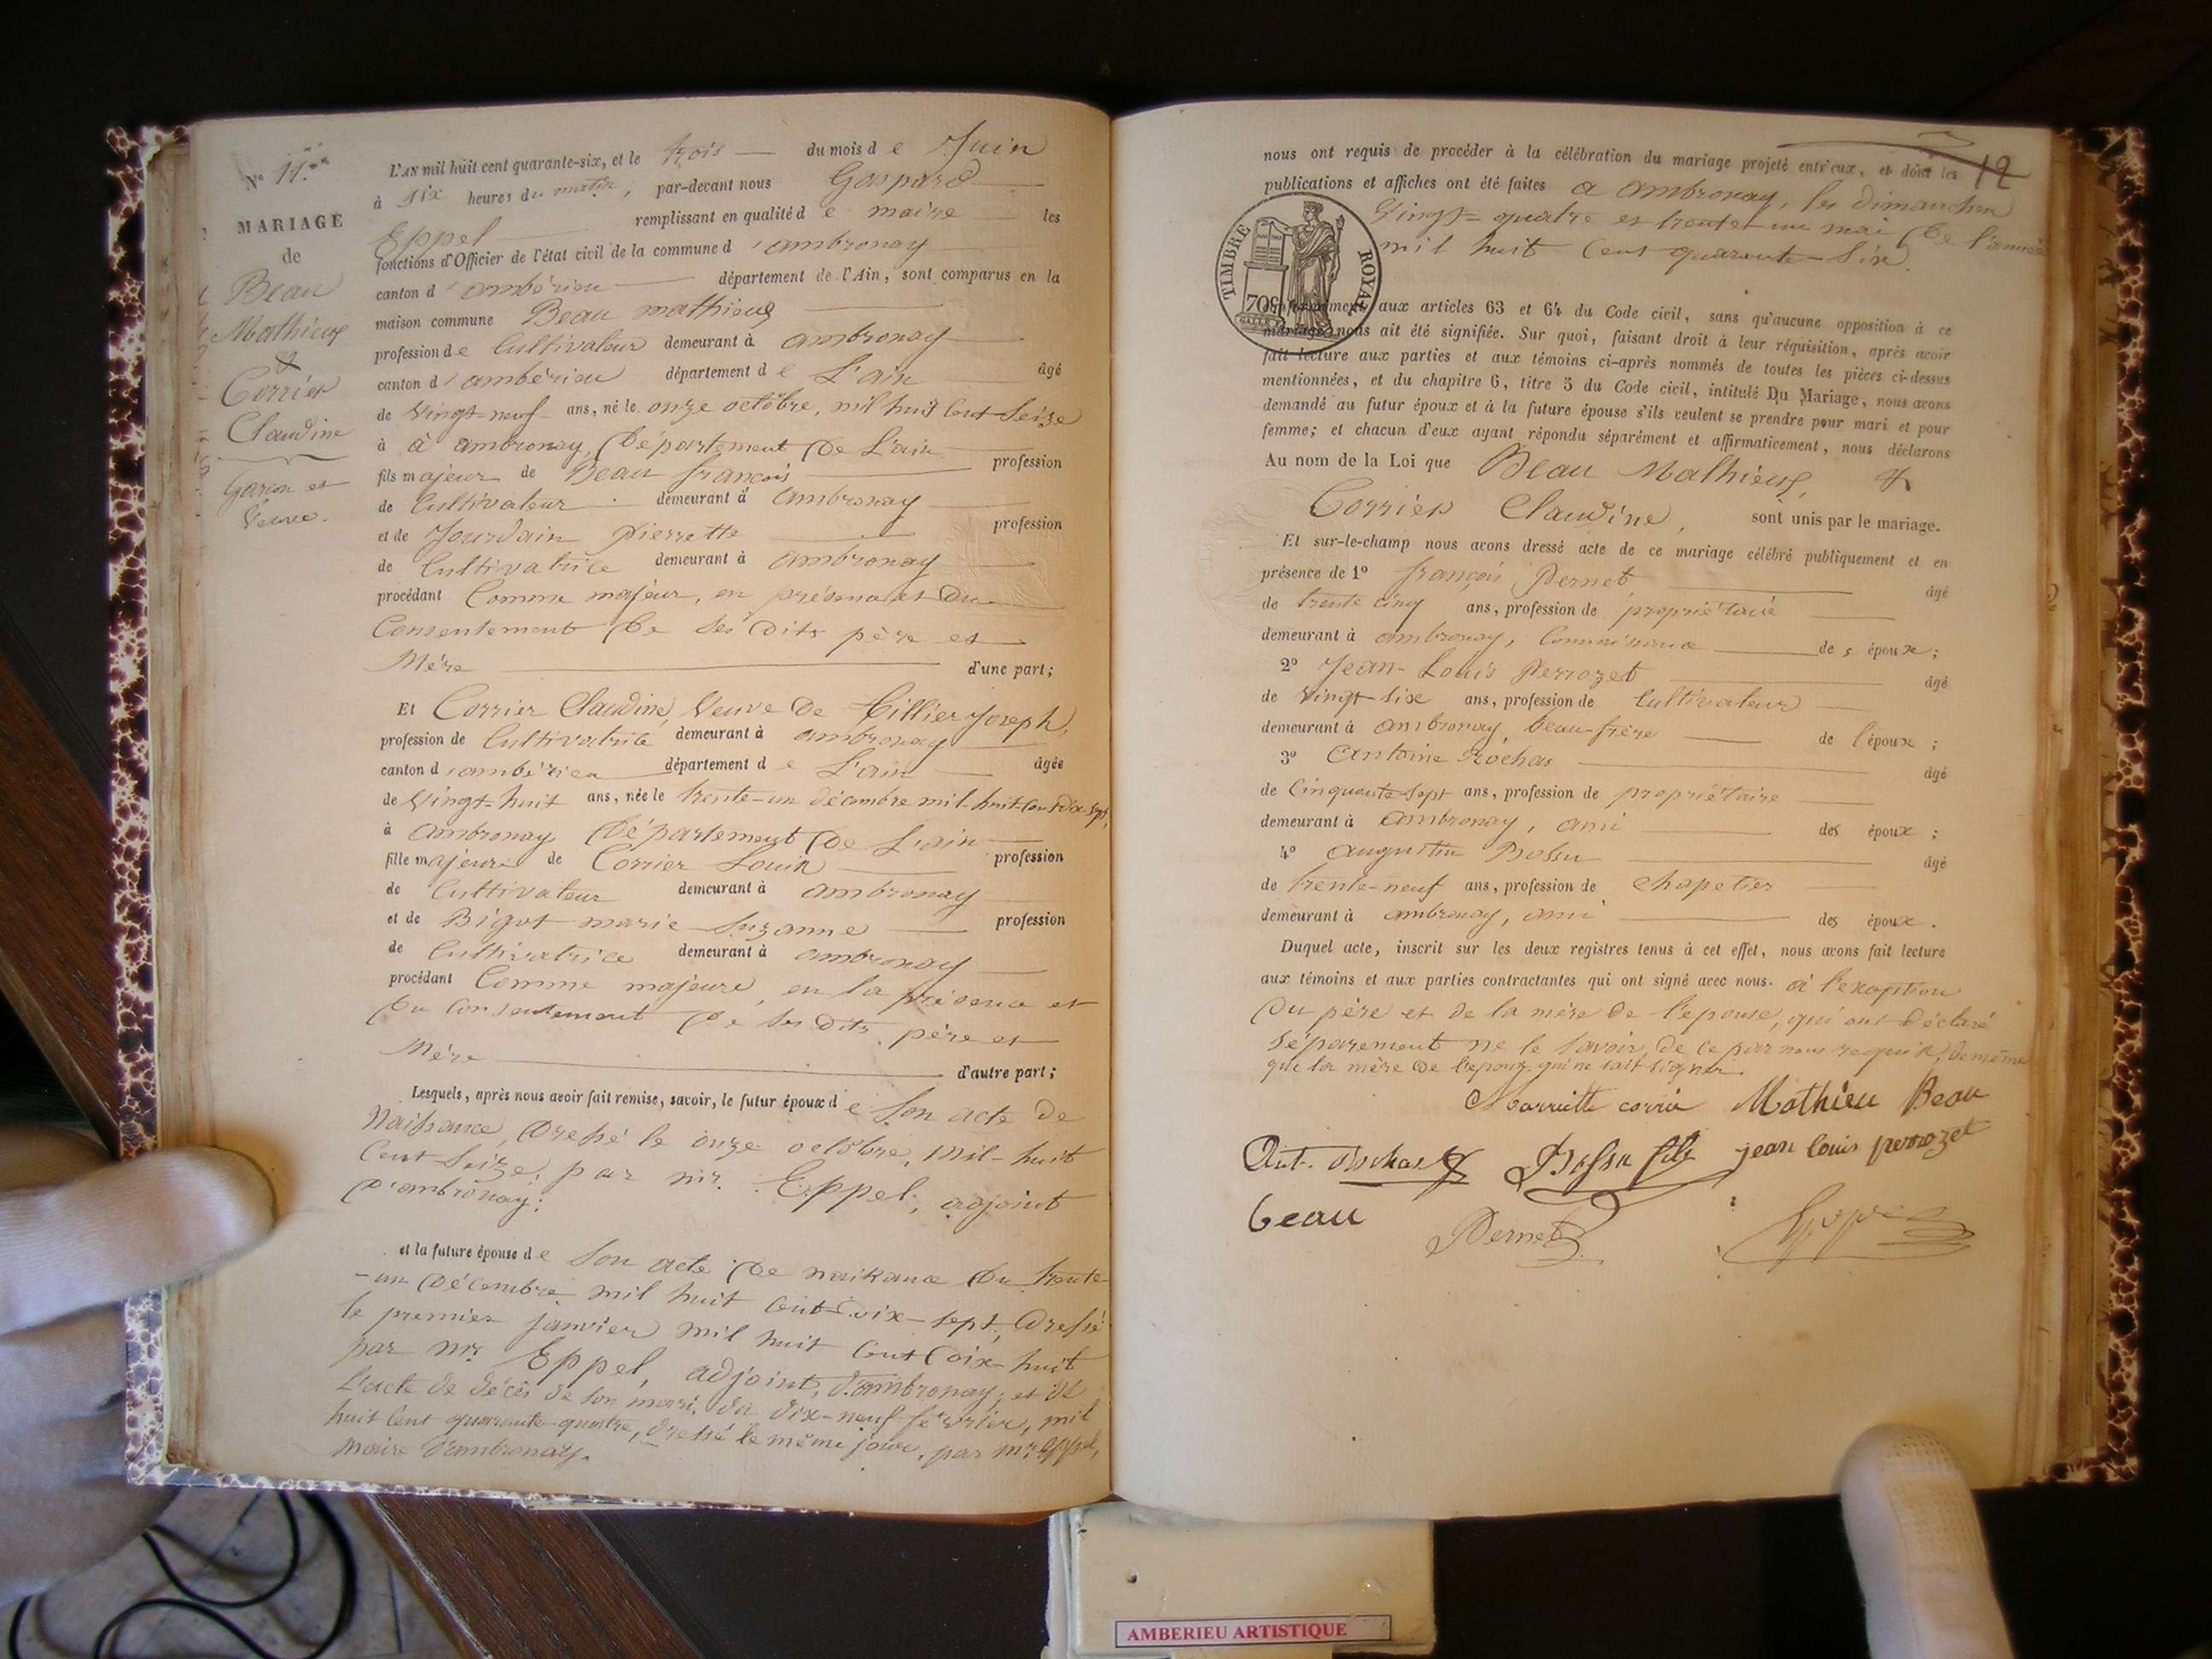 N° 11.
MARIAGE
de
Beau
Mathieux
&
Corrier
Claudine
Garçon et
Veuve.
L'AN mil huit cent quarante-six, et le trois du mois de Juin
à six heures du matin, par-devant nous Gaspard
Eppel remplissant en qualité de maire les
fonctions d'Officier de l'état civil de la commune d'ambronay
canton d'ambérieu département de l'Ain, sont comparus en la
maison commune Beau mathieux
profession de Cultivateur demeurant à ambronay
canton d'ambérieu département de L'ain âgé
de Vingt-neuf ans, né le onze octobre, mil huit Cent Seize
à à ambronay, Département De L'ain
fils majeur de Beau françois profession
de Cultivateur demeurant à ambronay
et de Jourdain pierrette profession
de Cultivatrice demeurant à ambronay
procédant Comme majeur, en présence et Du
Consentement De Ses Dits père et
Mère d'une part;
Et Corrier Claudine, Veuve De Tillier Joseph,
profession de Cultivatrice demeurant à ambronay
canton d'ambérieu département de L'ain âgée
de Vingt-huit ans, née le trente-un décembre mil-huit-Cent-Dix-Sept,
à ambronay Département De L'ain
fille majeure de Corrier Louis profession
de Cultivateur demeurant à ambronay
et de Bigot marie-Suzanne profession
de Cultivatrice demeurant à ambronay
procédant Comme majeure, en la présence et
Du Consentement De Ses Dits père et
Mère d'autre part;
Lesquels, après nous avoir fait remise, savoir, le futur époux de Son acte De
Naissance, Dressé le onze octobre, mil-huit
Cent Seize; par mr. Eppel, adjoint
D'ambronay;
et la future épouse de Son acte De naissance Du trente-
-un Décembre mil huit Cent-Dix-Sept, Dressé
le premier janvier mil huit Cent Dix-huit
par mr. Eppel, adjoint, d'ambronay; et de
L'acte de décès de Son mari, du dix-neuf février, mil
huit Cent quarante-quatre, dressé le même jour, par mr. Eppel,
Maire d'ambronay.
12
nous ont requis de procéder à la célébration du mariage projeté entr'eux, et dont les
publications et affiches ont été faites a ambronay, les dimanches
Vingt-quatre et trente-un mai De l'année
mil huit Cent quarante-Six.
TIMBRE ROYAL
70C
Conformément aux articles 63 et 64 du Code civil, sans qu'aucune opposition à ce
mariage nous ait été signifiée. Sur quoi, faisant droit à leur réquisition, après avoir
fait lecture aux parties et aux témoins ci-après nommés de toutes les pièces ci-dessus
mentionnées, et du chapitre 6, titre 5 du Code civil, intitulé Du Mariage, nous avons
demandé au futur époux et à la future épouse s'ils veulent se prendre pour mari et pour
femme; et chacun d'eux ayant répondu séparément et affirmativement, nous déclarons
Au nom de la Loi que Beau Mathieux, &
Corrier Claudine, sont unis par le mariage.
Et sur-le-champ nous avons dressé acte de ce mariage célébré publiquement et en
présence de 1° françois Pernet âgé
de trente cinq ans, profession de propriétaire
demeurant à ambronay, des époux;
2° Jean-Louis Perrozet âgé
de Vingt-Six ans, profession de Cultivateur
demeurant à ambronay, beau-frère de l'époux;
3° Antoine Rochas âgé
de Cinquante-Sept ans, profession de propriétaire
demeurant à ambronay, ami des époux;
4° augustin Bossu âgé
de trente-neuf ans, profession de chapelier
demeurant à ambronay, ami des époux.
Duquel acte, inscrit sur les deux registres tenus à cet effet, nous avons fait lecture
aux témoins et aux parties contractantes qui ont signé avec nous. à l'exception
Du père et de la mère De l'épouse, qui ont déclaré
Séparement ne le Savoir, de ce par nous requis, de même
que la mère De l'epoux qui ne sait Signer.
Marriette corrié Mathieu Beau
Ant. Rochas Bossu fils jean louis perrozet
beau Pernet
AMBERIEU ARTISTIQUE